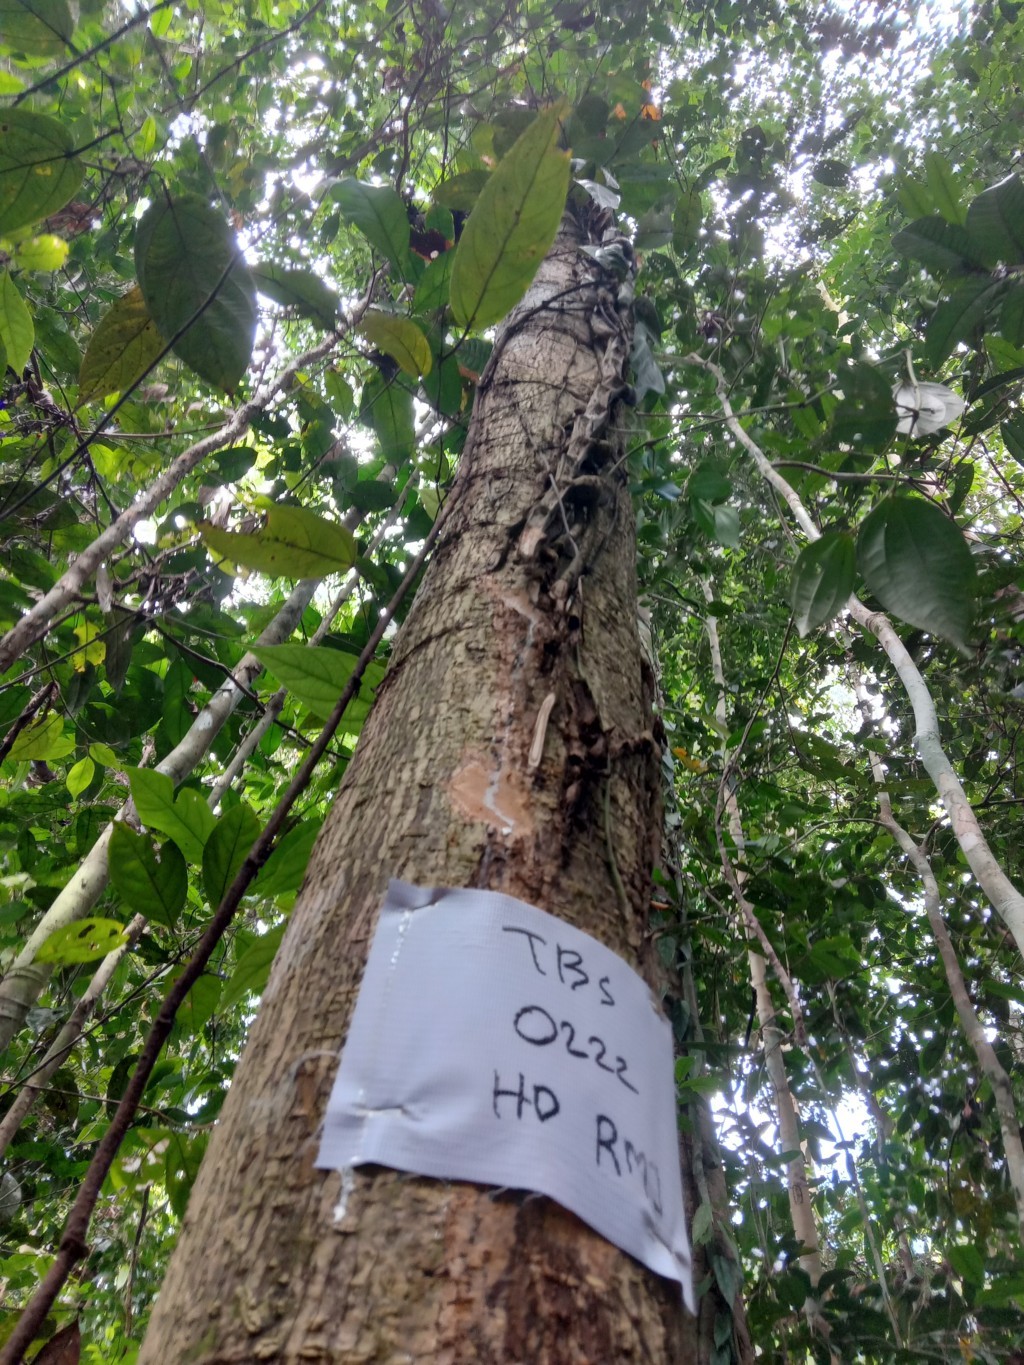 TBS
0222
HD RMJ